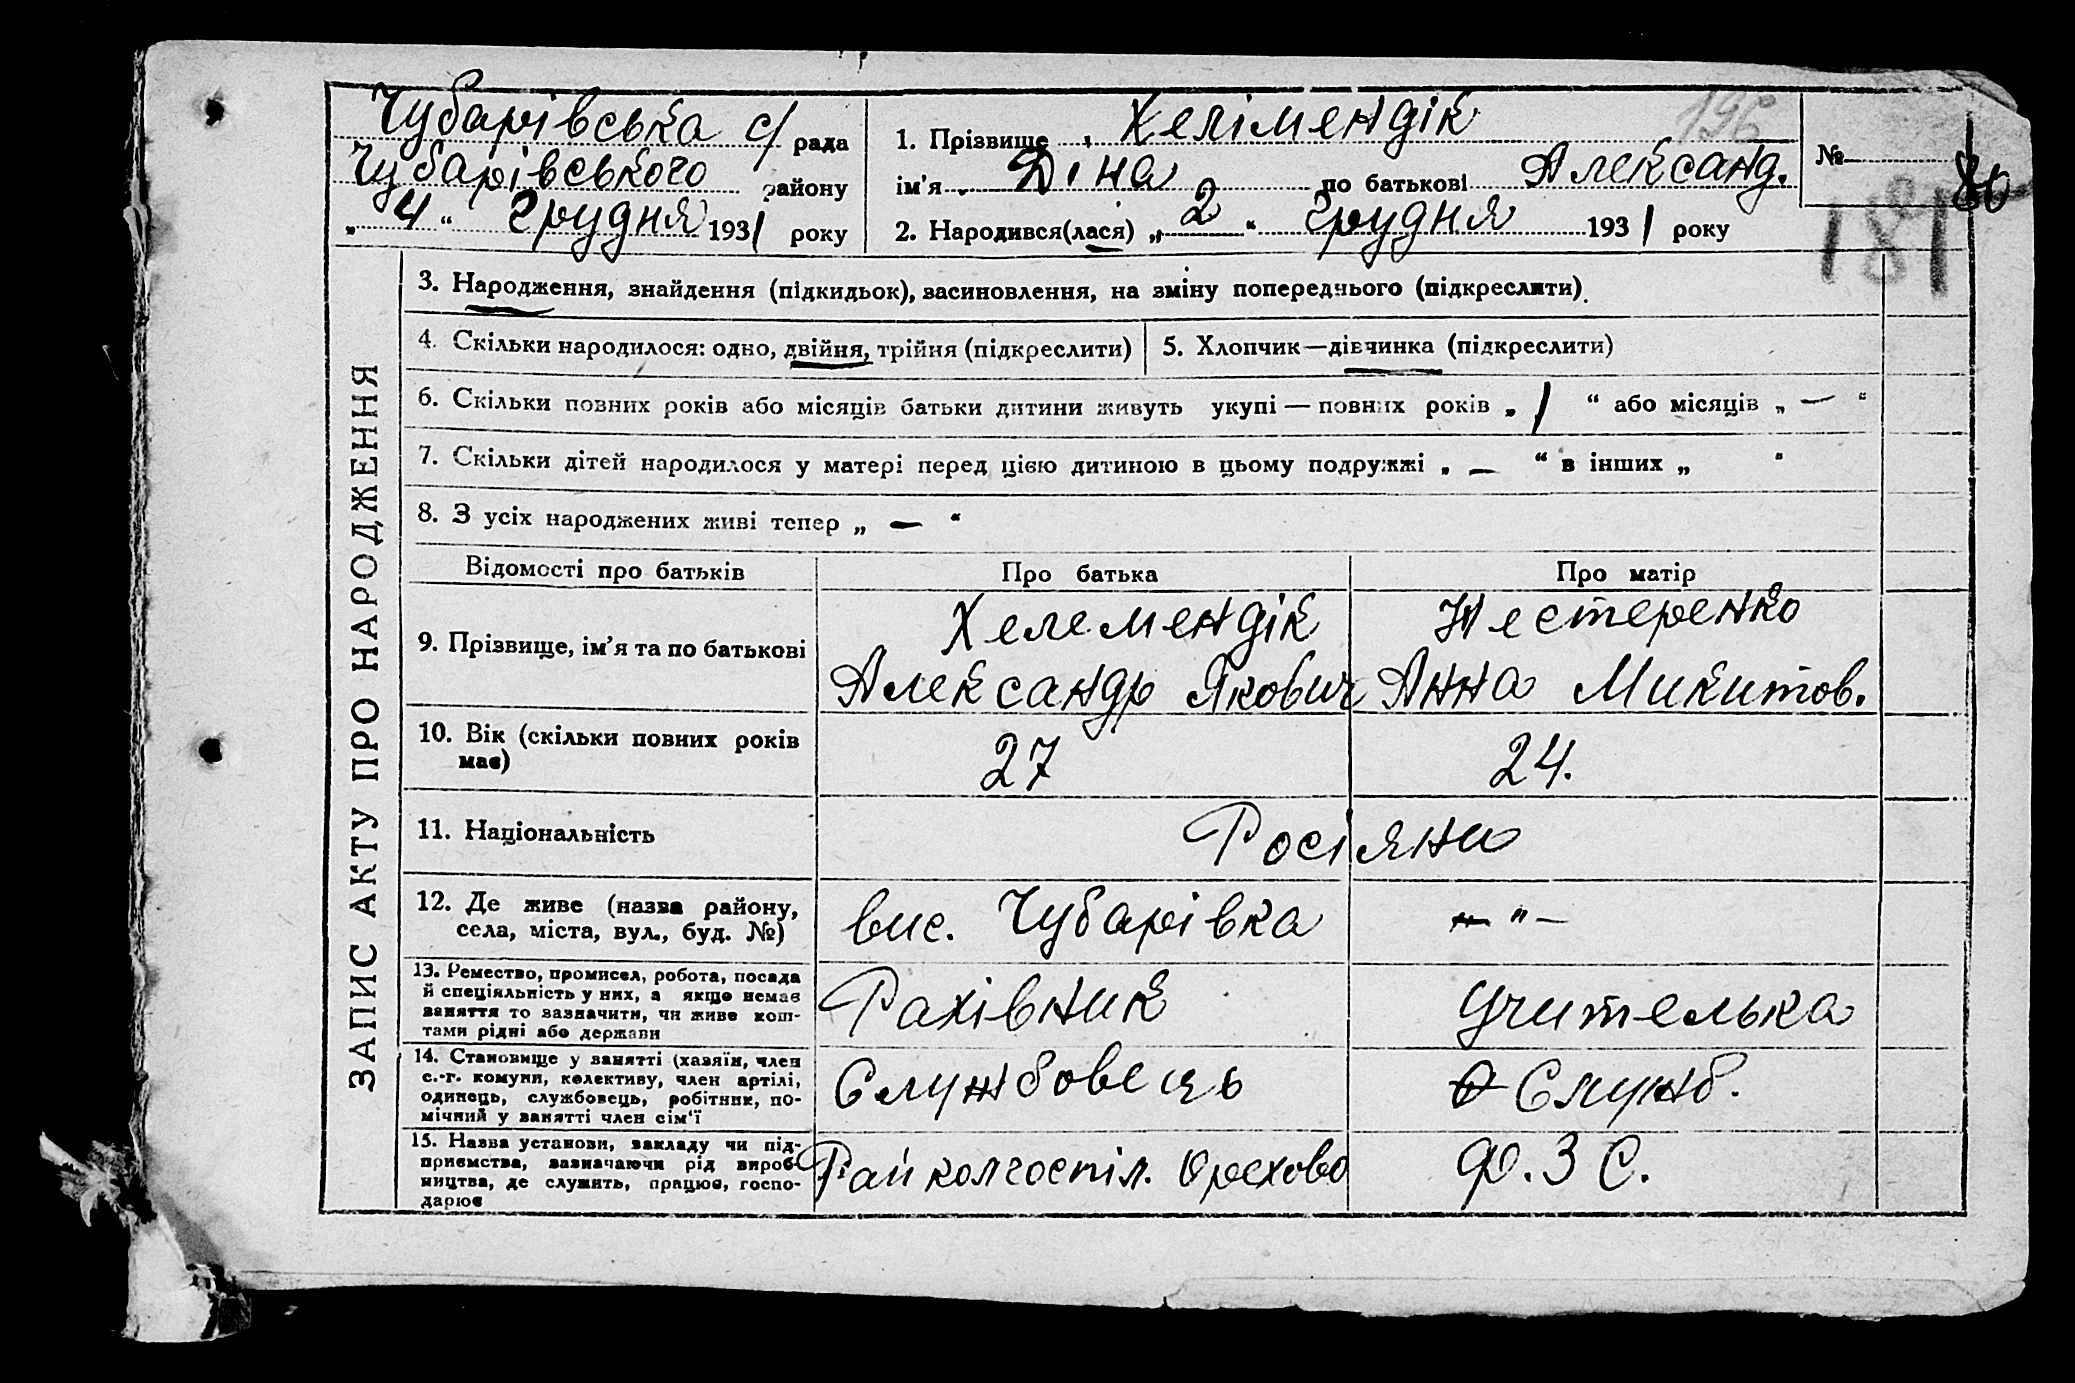 Чубарівська с/рада
Чубарівського району
„4“ Грудня 1931 року
1. Прізвище Хелімендік
ім’я Діна по батькові Александ.
2. Народився(лася) „2“ Грудня 1931 року
196
№ 80
181
ЗАПИС АКТУ ПРО НАРОДЖЕННЯ
3. Народження, знайдення (підкидьок), васиновлення, на зміну попереднього (підкреслити).
4. Скільки народилося: одно, двійня, трійня (підкреслити)
5. Хлопчик—дівчинка (підкреслити)
6. Скільки повних років або місяців батьки дитини живуть укупі — повних років „1“ або місяців „—“
7. Скільки дітей народилося у матері перед цією дитиною в цьому подружжі „—“ в інших „ “
8. З усіх народжених живі тепер „—“
Відомості про батьків Про батька Про матір
9. Прізвище, ім’я та по батькові
Хелемендік
Александр Якович
Нестеренко
Анна Микитов.
10. Вік (скільки повних років
має)
27
24.
11. Національність
Росіяни
12. Де живе (назва району,
села, міста, вул., буд. №)
вис. Чубарівка
— " —
13. Ремество, промисел, робота, посада
й спеціяльність у них, а якщо немає
заняття то зазначити, чи живе кош-
тами рідні або держави
Рахівник
Учителька
14. Становище у занятті (хазяїн, член
с.-г. комуни, колективу, член артілі,
одинець, службовець, робітник, по-
мічний у занятті член сім‘ї
Службовець
Служб.
15. Назва установи, закладу чи під-
приємства, зазначаючи рід вироб-
ництва, де служить, працює, госпо-
дарює
Райколгоспіл. Орехово
Ф. З С.